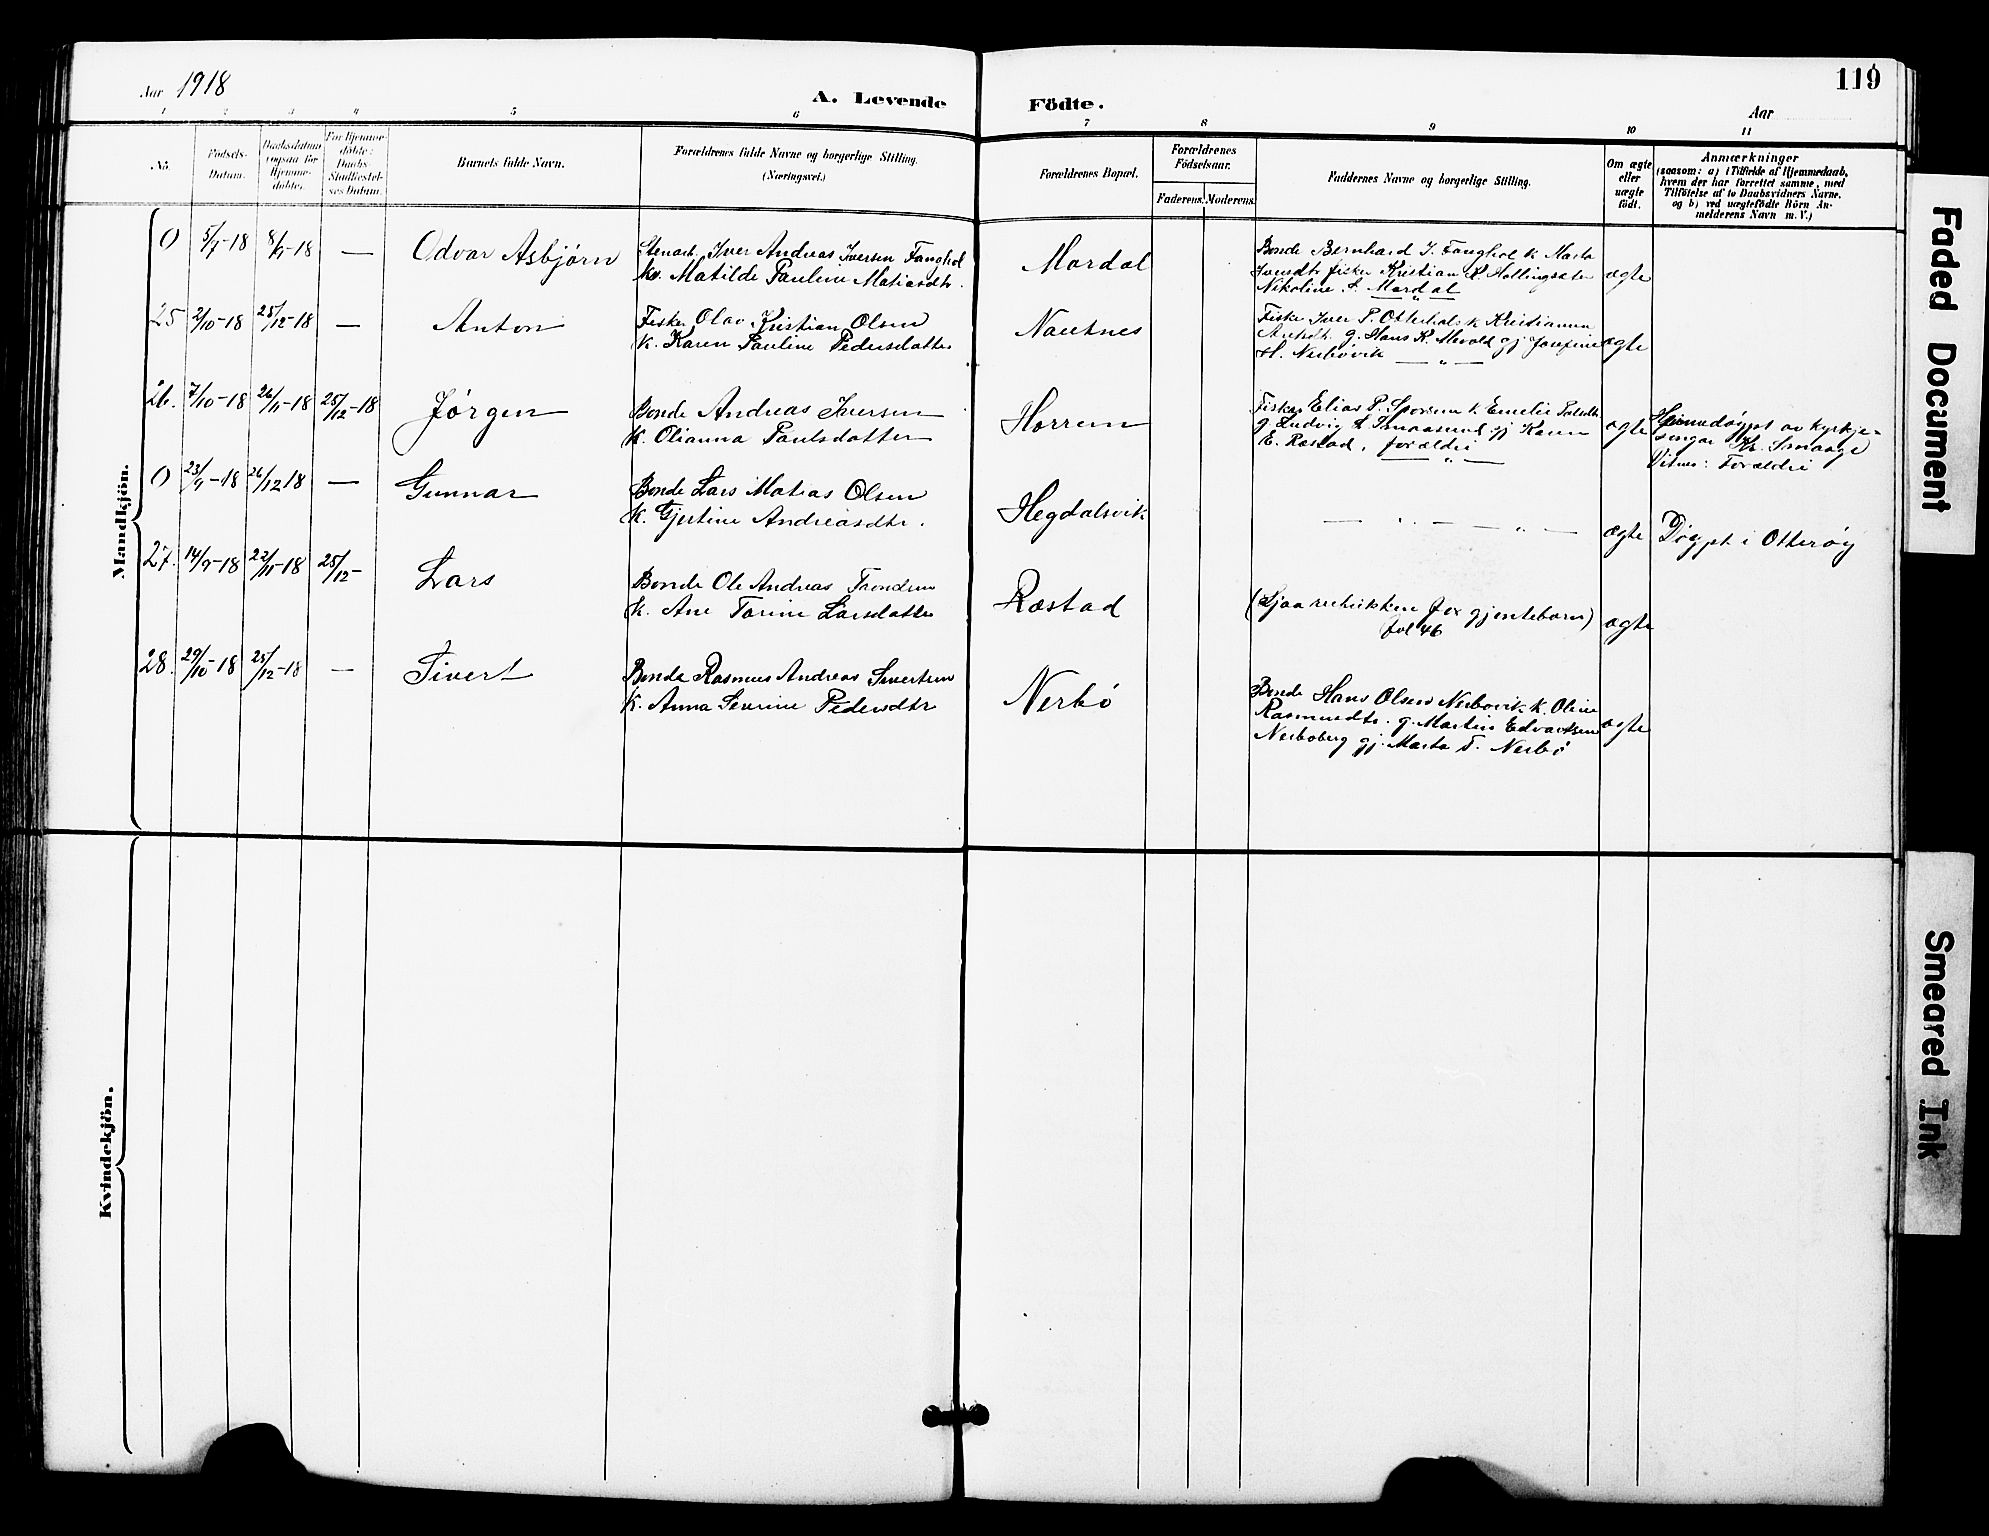 Aar 1918
A. Levende Födte.
119
Aar
1 2 3 4 5 6 7 8 9 10 11
No.
Födsels-
Datum.
Daabsdatum
ogsaa for
Hjemme-
döbte.
For Hjemme-
döbte:
Daabs-
Stadfæstel-
ses Datum.
Barnets fulde Navn.
Forældrenes fulde Navne og borgerlige Stilling.
(Næringsvei.)
Forældrenes Bopæl.
Forældrenes
Födselsaar.
Faderens. Moderens.
Faddernes Navne og borgerlige Stilling.
Om ægte
eller
uægte
födt.
Anmærkninger
(saasom: a) i Tilfælde af Hjemmedaab,
hvem der har forrettet samme, med
Tilföielse af to Daabsvidners Navne,
og b) ved uægtefödte Börn An-
melderens Navn m. V.)
Mandkjön.
0 8/9-18 — Odvar Asbjørn
Iver Andreas Iversen Fanghol
Matilde Pauline Matiasdtr.
Mordal
Bonde Bernhard I. Fanghol k. Marta
fisker Kristian
Nikoline S. Mordal
ægte
25 2/10-18 25/12-18 — Anton
Fisker Olav Kristian Olsen
K. Karen Pauline Pedersdatter
Nautnes
Fisker Iver P. Otterhals k Kristianna
g. Hans K. gj Josefine
H. Nerbøvik — " —
ægte
26. 7/10-18 26/11-18 25/12-18 Jørgen
Bonde Andreas Iversen
K. Olianna Paulsdatter
Horrem
Fisker Elias P. k Emelie
g Ludvig gj Karen
E. Ræstad, forældri
— " —
ægte
Heimedøypt av kyrkje-
songar Kr. Smaage
Vitner: Forældri
0 26/12 18 — Gunnar
Bonde Lars Matias Olsen
K. Gjertine Andreasdtr.
Hegdalsvik
— " — — " —
ægte
Døypt i Otterøy
27. 14/9-18 22/11-18 25/12- Lars
Bonde Ole Andreas Trondsen
K. Ane Torine Larsdatter
Ræstad
(Sjaa rubrikken for gjentebarn)
fol 46
ægte
28. 29/10-18 25/12-18 — Sivert
Bonde Rasmus Andreas Sivertsen
K. Anna Severine Pedersdtr
Nerbö
Bonde Hans Olsen Nerbovik k. Oline
Rasmusdtr. g. Martin Edvartsen
Nerboberg gj. Marta T. Nerbö
ægte
Kvindekjön.
Faded Document
Smeared Ink